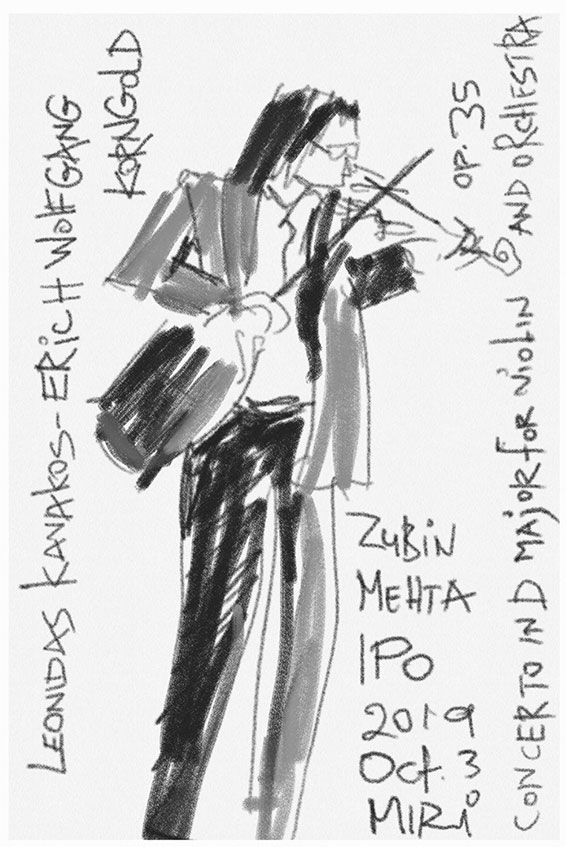 LEONIDAS KAVAKOS - ERICH WOLFGANG
KORNGOLD
CONCERTO IN D MAJOR FOR VIOLIN AND ORCHESTRA
OP. 35
ZUBIN
MEHTA
IPO
2019
Oct. 3
MIRI